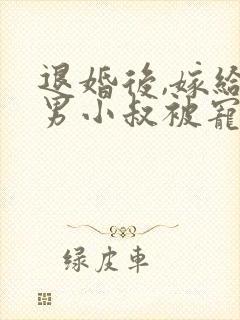 退婚後,嫁給
男小叔被寵
绿皮車